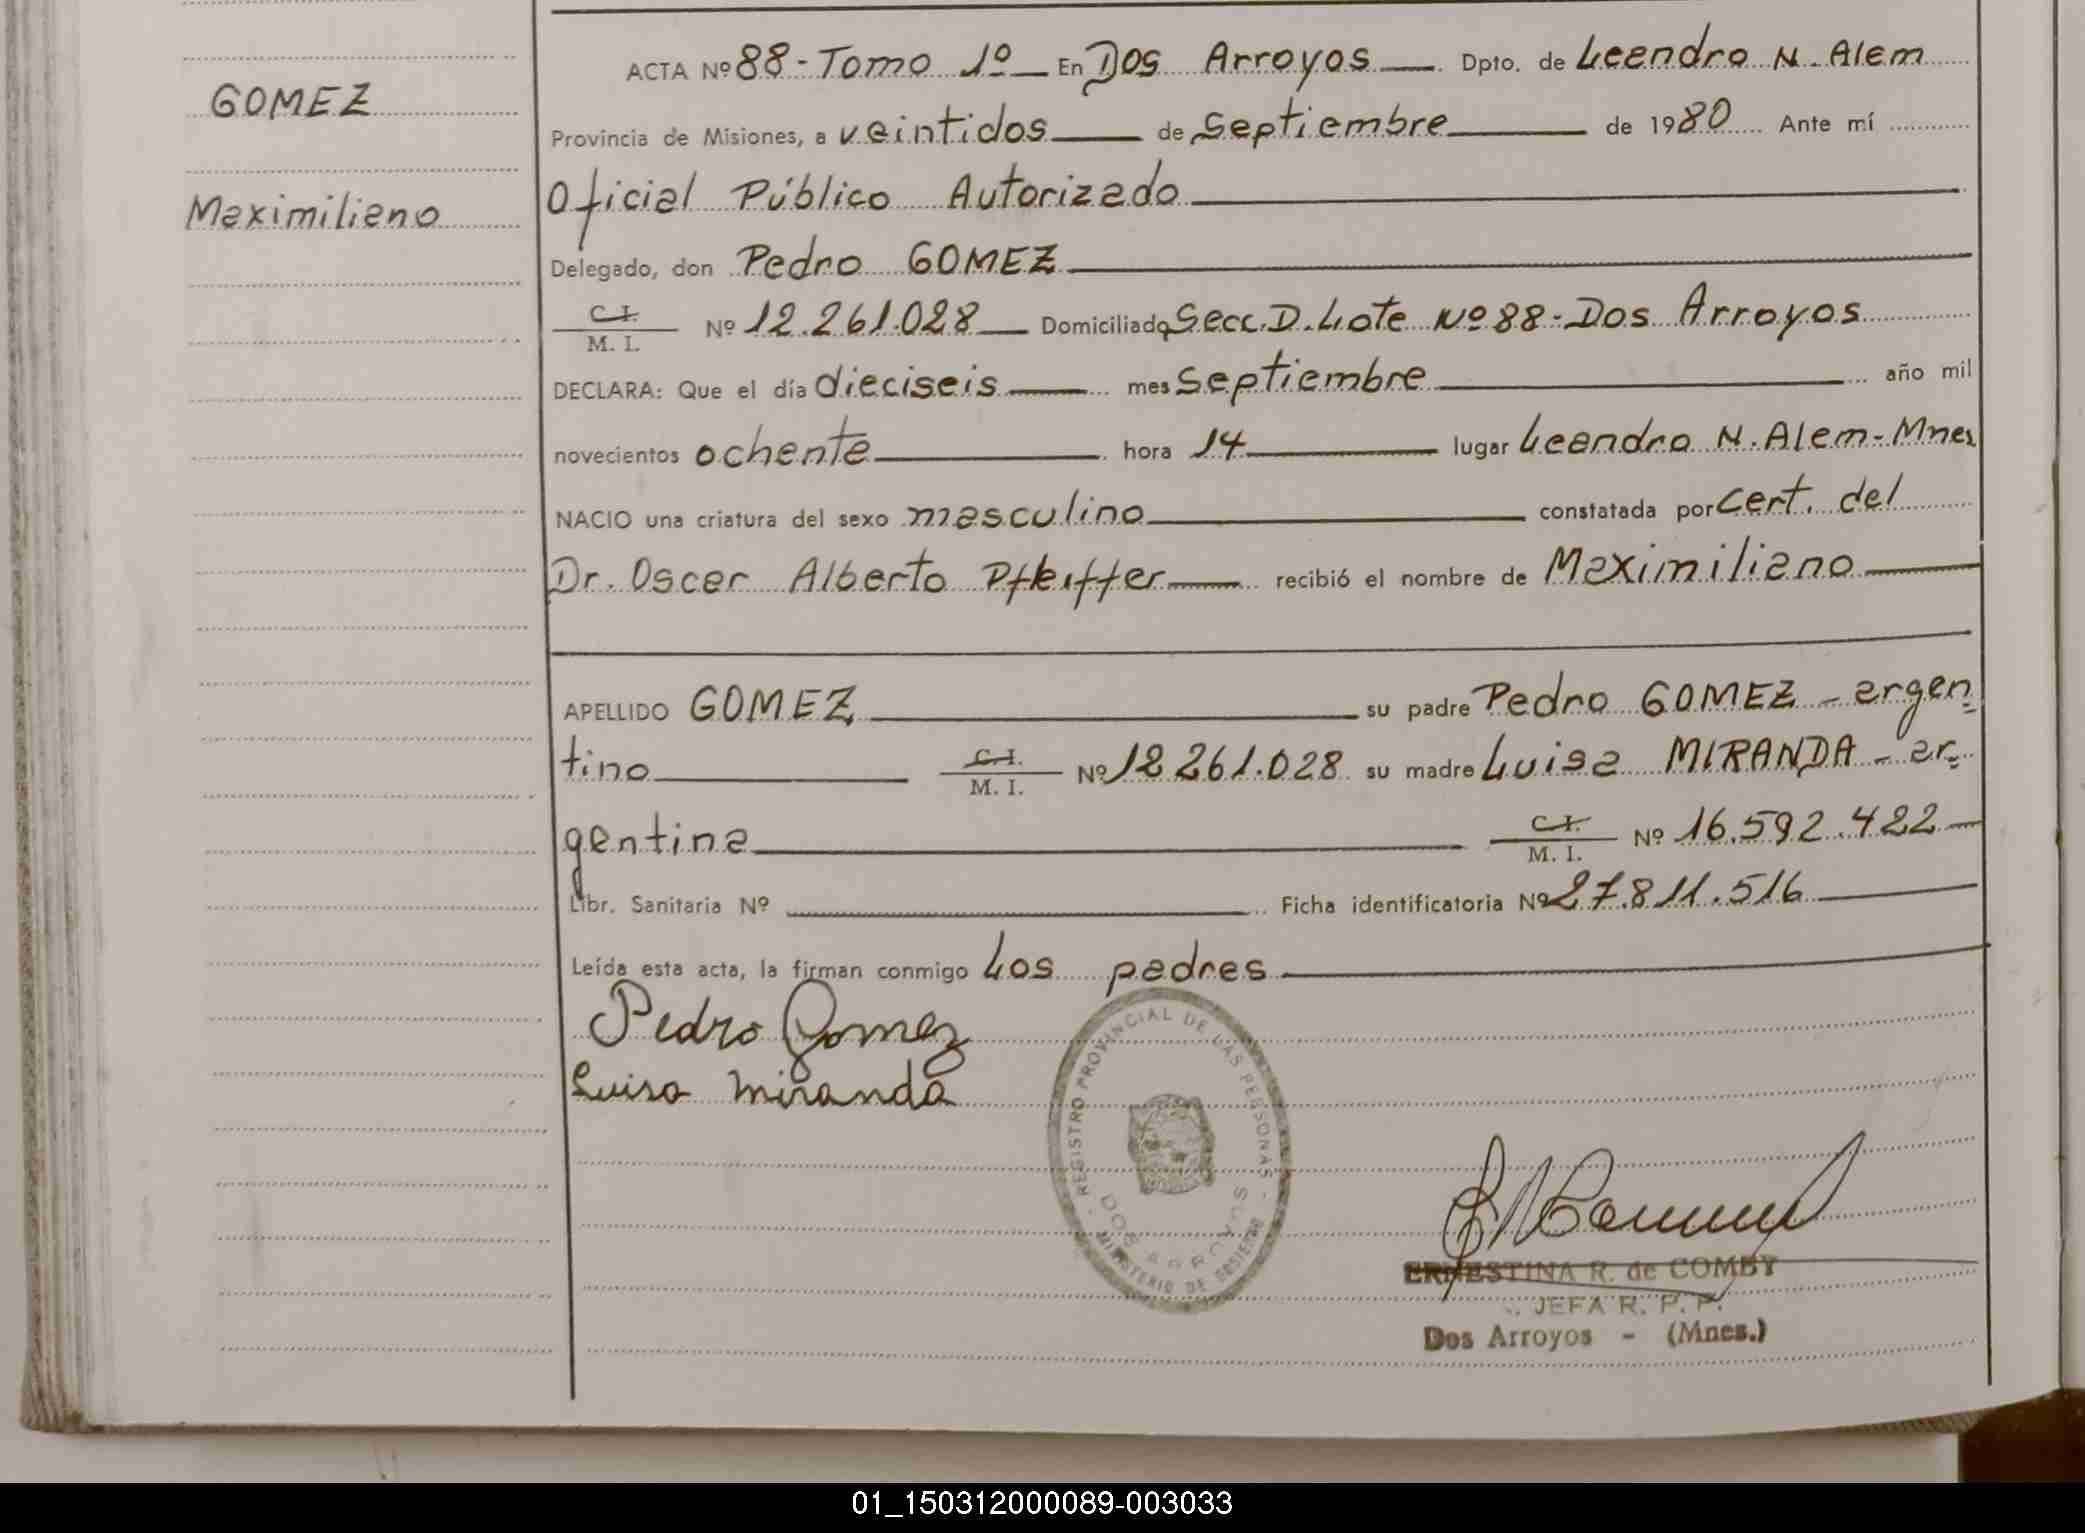 GOMEZ
Maximiliano
ACTA Nº 88 - Tomo 1º En Dos Arroyos Dpto. de Leandro N. Alem
Provincia de Misiones, a veintidos de Septiembre de 1980 Ante mí
Oficial Público Autorizado
Delegado, don Pedro GOMEZ
C.I.
M. I. Nº 12.261.028 Domiciliado Secc. D. Lote Nº 88 - Dos Arroyos
DECLARA: Que el día dieciseis mes Septiembre año mil
novecientos ochenta hora 14 lugar Leandro N. Alem - Mnes
NACIO una criatura del sexo masculino constatada por Cert. del
Dr. Oscar Alberto Pfeiffer recibió el nombre de Maximiliano
APELLIDO GOMEZ su padre Pedro GOMEZ - argen
tino C.I. M. I. Nº 12 261.028 su madre Luisa MIRANDA - ar
gentina C.I. M. I. Nº 16.592.422
Libr. Sanitaria Nº Ficha identificatoria Nº 27.811.516
Leída esta acta, la firman conmigo Los padres
Pedro Gomez
Luisa Miranda
- REGISTRO PROVINCIAL DE LAS PERSONAS -
DOS ARROYOS
MINISTERIO DE GOBIERNO
ERNESTINA R. de COMBY
JEFA R. P. P.
Dos Arroyos - (Mnes.)
01_150312000089-003033